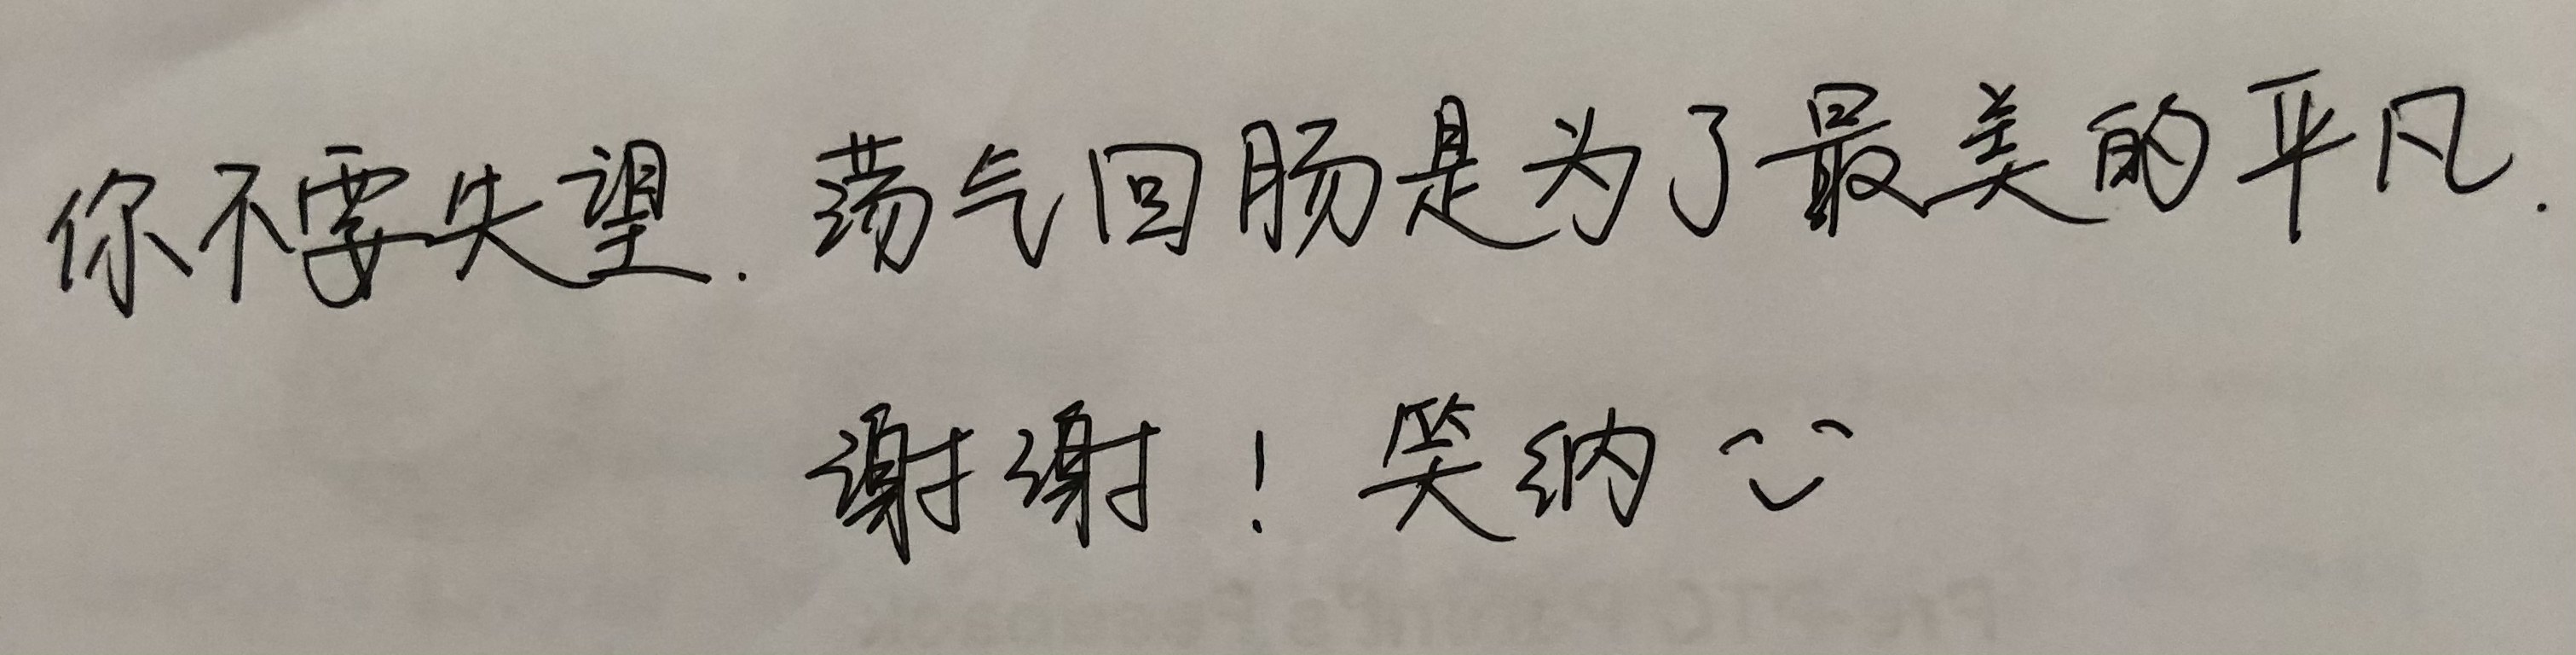 你不要失望.荡气回肠是为了最美的平凡.
谢谢!笑纳